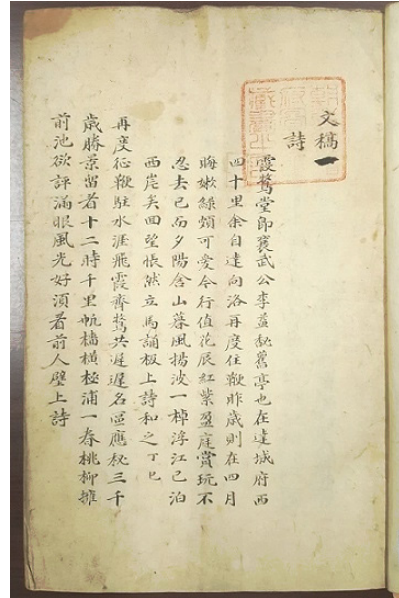 文稿一
詩
霞鶩堂即襄武公李舊亭也在達城府西
四十里余自達向洛再度住鞭昨歲則在四月
晦嫩綠頗可愛今行値花辰紅紫盈庭賞玩不
忍去已而夕陽含山暮風揚波一棹浮江已泊
西岸矣回望悵然立馬誦板上詩和之丁巳
再度征鞭駐水涯飛霞齊鶩共遲遲名區應秘三千
歲勝景留着十二時千里帆檣橫極浦一春桃柳擁
前池欲評滿眼風光好須着前人壁上詩